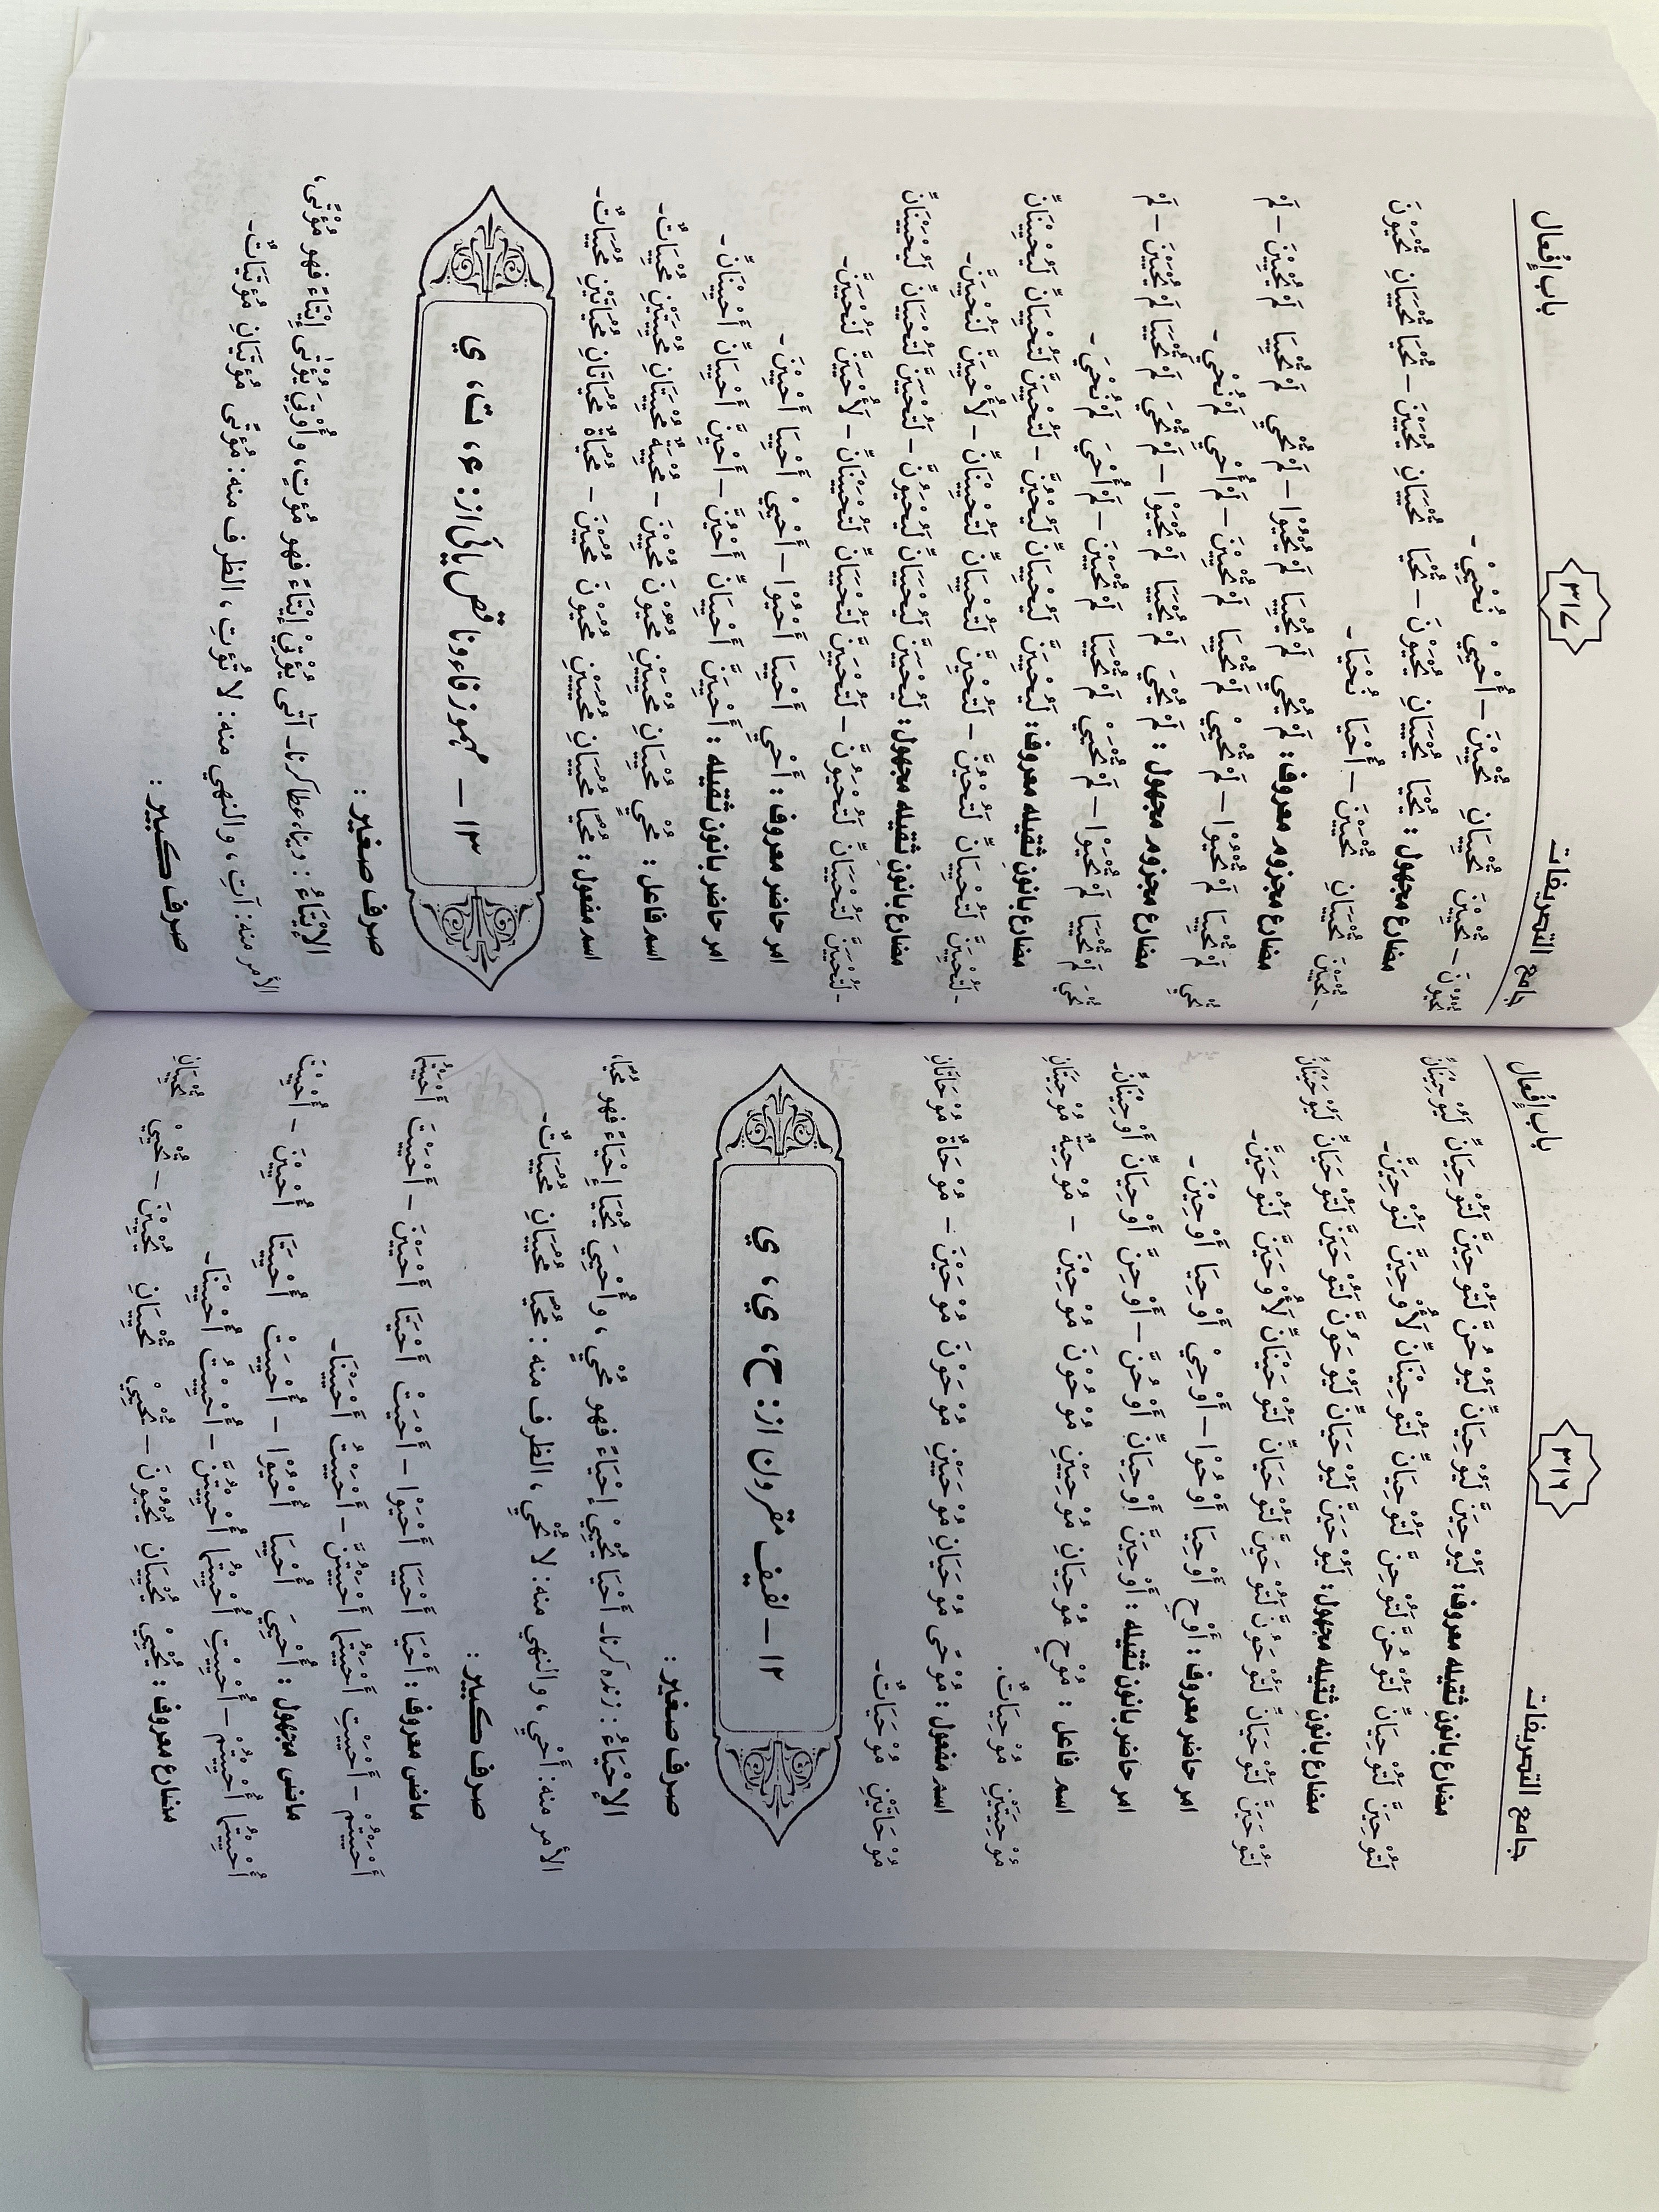 جامع التصريفات ٣١٦ باب إفْعال
مضارع بانونِ ثقيله معروف: لَيُوْحِيَنَّ لَيُوْحِيَانِّ لَيُوْحُنَّ لَتُوْحِيَنَّ لَتُوْحِيَانِّ لَيُوْحِيْنَانِّ
لَتُوْحِيَنَّ لَتُوْحِيَانِّ لَتُوْحُنَّ لَتُوْحِنَّ لَتُوْحِيَانِّ لَتُوْحِيْنَانِّ لَأُوْحِيَنَّ لَنُوْحِيَنَّ۔
مضارع بانونِ ثقيله مجهول: لَيُوْحَيَنَّ لَيُوْحَيَانِّ لَيُوْحَوُنَّ لَتُوْحَيَنَّ لَتُوْحَيَانِّ لَيُوْحَيْنَانِّ
لَتُوْحَيَنَّ لَتُوْحَيَانِّ لَتُوْحَوُنَّ لَتُوْحَيِنَّ لَتُوْحَيَانِّ لَتُوْحَيْنَانِّ لَأُوْحَيَنَّ لَنُوْحَيَنَّ۔
امر حاضر معروف: أَوْحِ أَوْحِيَا أَوْحُوْا – أَوْحِيْ أَوْحِيَا أَوْحِيْنَ۔
امر حاضر بانون ثقيله: أَوْحِيَنَّ أَوْحِيَانِّ أَوْحُنَّ – أَوْحِنَّ أَوْحِيَانِّ أَوْحِيْنَانِّ۔
اسم فاعل: مُوْحٍ مُوْحِيَانِ مُوْحِيَيْنِ مُوْحُوْنَ مُوْحِيْنَ – مُوْحِيَةٌ مُوْحِيَتَانِ
مُوْحِيَتَيْنِ مُوْحِيَاتٌ.
اسم مفعول: مُوْحًى مُوْحَيَانِ مُوْحَيَيْنِ مُوْحَوْنَ مُوْحَيْنَ – مُوْحَاةٌ مُوْحَاتَانِ
مُوْحَاتَيْنِ مُوْحَيَاتٌ۔
١٢ – لفيف مقرون از: ح، ي، ي
صرف صغير:
الإحْيَاءُ: زنده كرنا۔ أَحْيَا يُحْيِيْ إحْيَاءً فهو مُحْيٍ، وأُحْيِيَ يُحْيَا إحْيَاءً فهو مُحْيًا،
الأمر منه: أَحْيِ، والنهي منه: لا تُحْيِ، الظرف منه: مُحْيًا مُحْيَيَانِ مُحْيَيَاتٌ۔
صرف كبير:
ماضى معروف: أَحْيَا أَحْيَيَا أَحْيَوْا – أَحْيَتْ أَحْيَتَا أَحْيَيْنَ – أَحْيَيْتَ أَحْيَيْتُمَا
أَحْيَيْتُمْ – أَحْيَيْتِ أَحْيَيْتُمَا أَحْيَيْتُنَّ – أَحْيَيْتُ أَحْيَيْنَا۔
ماضى مجهول: أُحْيِيَ أُحْيِيَا أُحْيُوْا – أُحْيِيَتْ أُحْيِيَتَا أُحْيِيْنَ – أُحْيِيْتَ
أُحْيِيْتُمَا أُحْيِيْتُمْ – أُحْيِيْتِ أُحْيِيْتُمَا أُحْيِيْتُنَّ – أُحْيِيْتُ أُحْيِيْنَا۔
مضارع معروف: يُحْيِيْ يُحْيِيَانِ يُحْيُوْنَ – تُحْيِيْ تُحْيِيَانِ يُحْيِيْنَ – تُحْيِيْ تُحْيِيَانِ
جامع التصريفات ٣١٧ باب إفْعال
تُحْيُوْنَ – تُحْيِيْنَ تُحْيِيَانِ تُحْيِيْنَ – أُحْيِيْ نُحْيِيْ۔
مضارع مجهول: يُحْيَا يُحْيَيَانِ يُحْيَوْنَ – تُحْيَا تُحْيَيَانِ يُحْيَيْنَ – تُحْيَا تُحْيَيَانِ تُحْيَوْنَ
تُحْيَيْنَ تُحْيَيَانِ تُحْيَيْنَ – أُحْيَا نُحْيَا۔
مضارع مجزوم معروف: لَمْ يُحْيِ لَمْ يُحْيِيَا لَمْ يُحْيُوْا – لَمْ تُحْيِ لَمْ تُحْيِيَا لَمْ يُحْيِيْنَ – لَمْ
تُحْيِ لَمْ تُحْيِيَا لَمْ تُحْيُوْا – لَمْ تُحْيِيْ لَمْ تُحْيِيَا لَمْ تُحْيِيْنَ – لَمْ أُحْيِ لَمْ نُحْيِ۔
مضارع مجزوم مجهول: لَمْ يُحْيَ لَمْ يُحْيَيَا لَمْ يُحْيَوْا – لَمْ تُحْيَ لَمْ تُحْيَيَا لَمْ يُحْيَيْنَ – لَمْ
تُحْيَ لَمْ تُحْيَيَا لَمْ تُحْيَوْا – لَمْ تُحْيَيْ لَمْ تُحْيَيَا لَمْ تُحْيَيْنَ – لَمْ أُحْيَ لَمْ نُحْيَ۔
مضارع بانونِ ثقيله معروف: لَيُحْيِيَنَّ لَيُحْيِيَانِّ لَيُحْيُنَّ – لَتُحْيِيَنَّ لَتُحْيِيَانِّ لَيُحْيِيْنَانِّ
–لَتُحْيِيَنَّ لَتُحْيِيَانِّ لَتُحْيُنَّ – لَتُحْيِنَّ لَتُحْيِيَانِّ لَتُحْيِيْنَانِّ – لَأُحْيِيَنَّ لَنُحْيِيَنَّ۔
مضارع بانونِ ثقيله مجهول: لَيُحْيَيَنَّ لَيُحْيَيَانِّ لَيُحْيَوُنَّ – لَتُحْيَيَنَّ لَتُحْيَيَانِّ لَيُحْيَيْنَانِّ
–لَتُحْيَيَنَّ لَتُحْيَيَانِّ لَتُحْيَوُنَّ – لَتُحْيَيِنَّ لَتُحْيَيَانِّ لَتُحْيَيْنَانِّ – لَأُحْيَيَنَّ لَنُحْيَيَنَّ۔
امر حاضر معروف: أَحْيِ أَحْيِيَا أَحْيُوْا – أَحْيِيْ أَحْيِيَا أَحْيِيْنَ۔
امر حاضر بانون ثقيله: أَحْيِيَنَّ أَحْيِيَانِّ أَحْيُنَّ – أَحْيِنَّ أَحْيِيَانِّ أَحْيِيْنَانِّ۔
اسم فاعل: مُحْيٍ مُحْيِيَانِ مُحْيِيَيْنِ مُحْيُوْنَ مُحْيِيْنَ – مُحْيِيَةٌ مُحْيِيَتَانِ مُحْيِيَتَيْنِ مُحْيِيَاتٌ۔
اسم مفعول: مُحْيًا مُحْيَيَانِ مُحْيَيَيْنِ مُحْيَوْنَ مُحْيَيْنَ – مُحْيَاةٌ مُحْيَاتَانِ مُحْيَاتَيْنِ مُحْيَيَاتٌ۔
١٣ – مہموز فاء وناقص يائی از: ء، ت، ي
صرف صغير:
الإيْتَاءُ: دينا، عطا كرنا۔ آتٰى يُؤْتِيْ إيْتَاءً فهو مُؤْتٍ، وأُوْتِيَ يُؤْتٰى إيْتَاءً فهو مُؤْتًى،
الأمر منه: آتِ، والنهي منه: لا تُؤْتِ، الظرف منه: مُؤْتًى مُؤْتَيَانِ مُؤْتَيَاتٌ۔
صرف كبير: